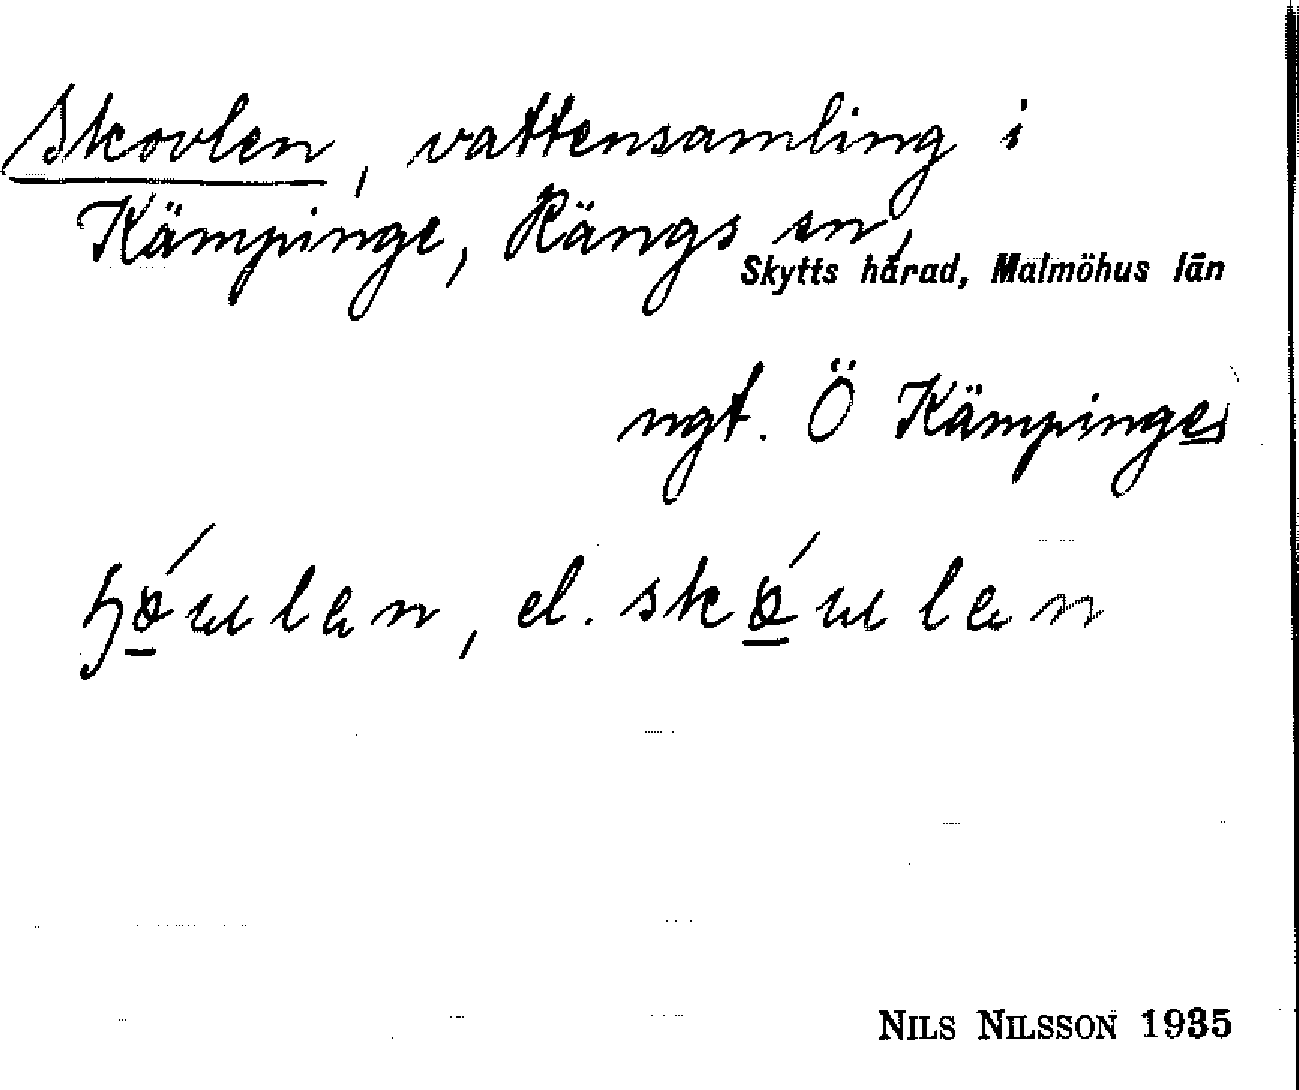 Skovlen, vattensamling i
Kämpinge, Rängs sn,
Skytts härad, Malmöhus län
ngt. Ö Kämpinge
el.
NILS NILSSON 1935